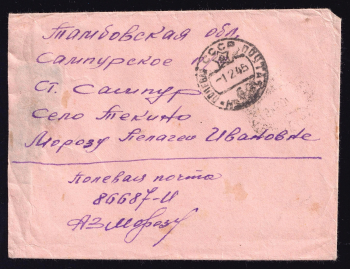 Тамбовская обл
Сампурское п
СССР ПОЧТА
-1 2 45
Ст. Сампур
Село Текино
Морозу Пелагеи Ивановне
Полевая почта
86687-И
Морозу